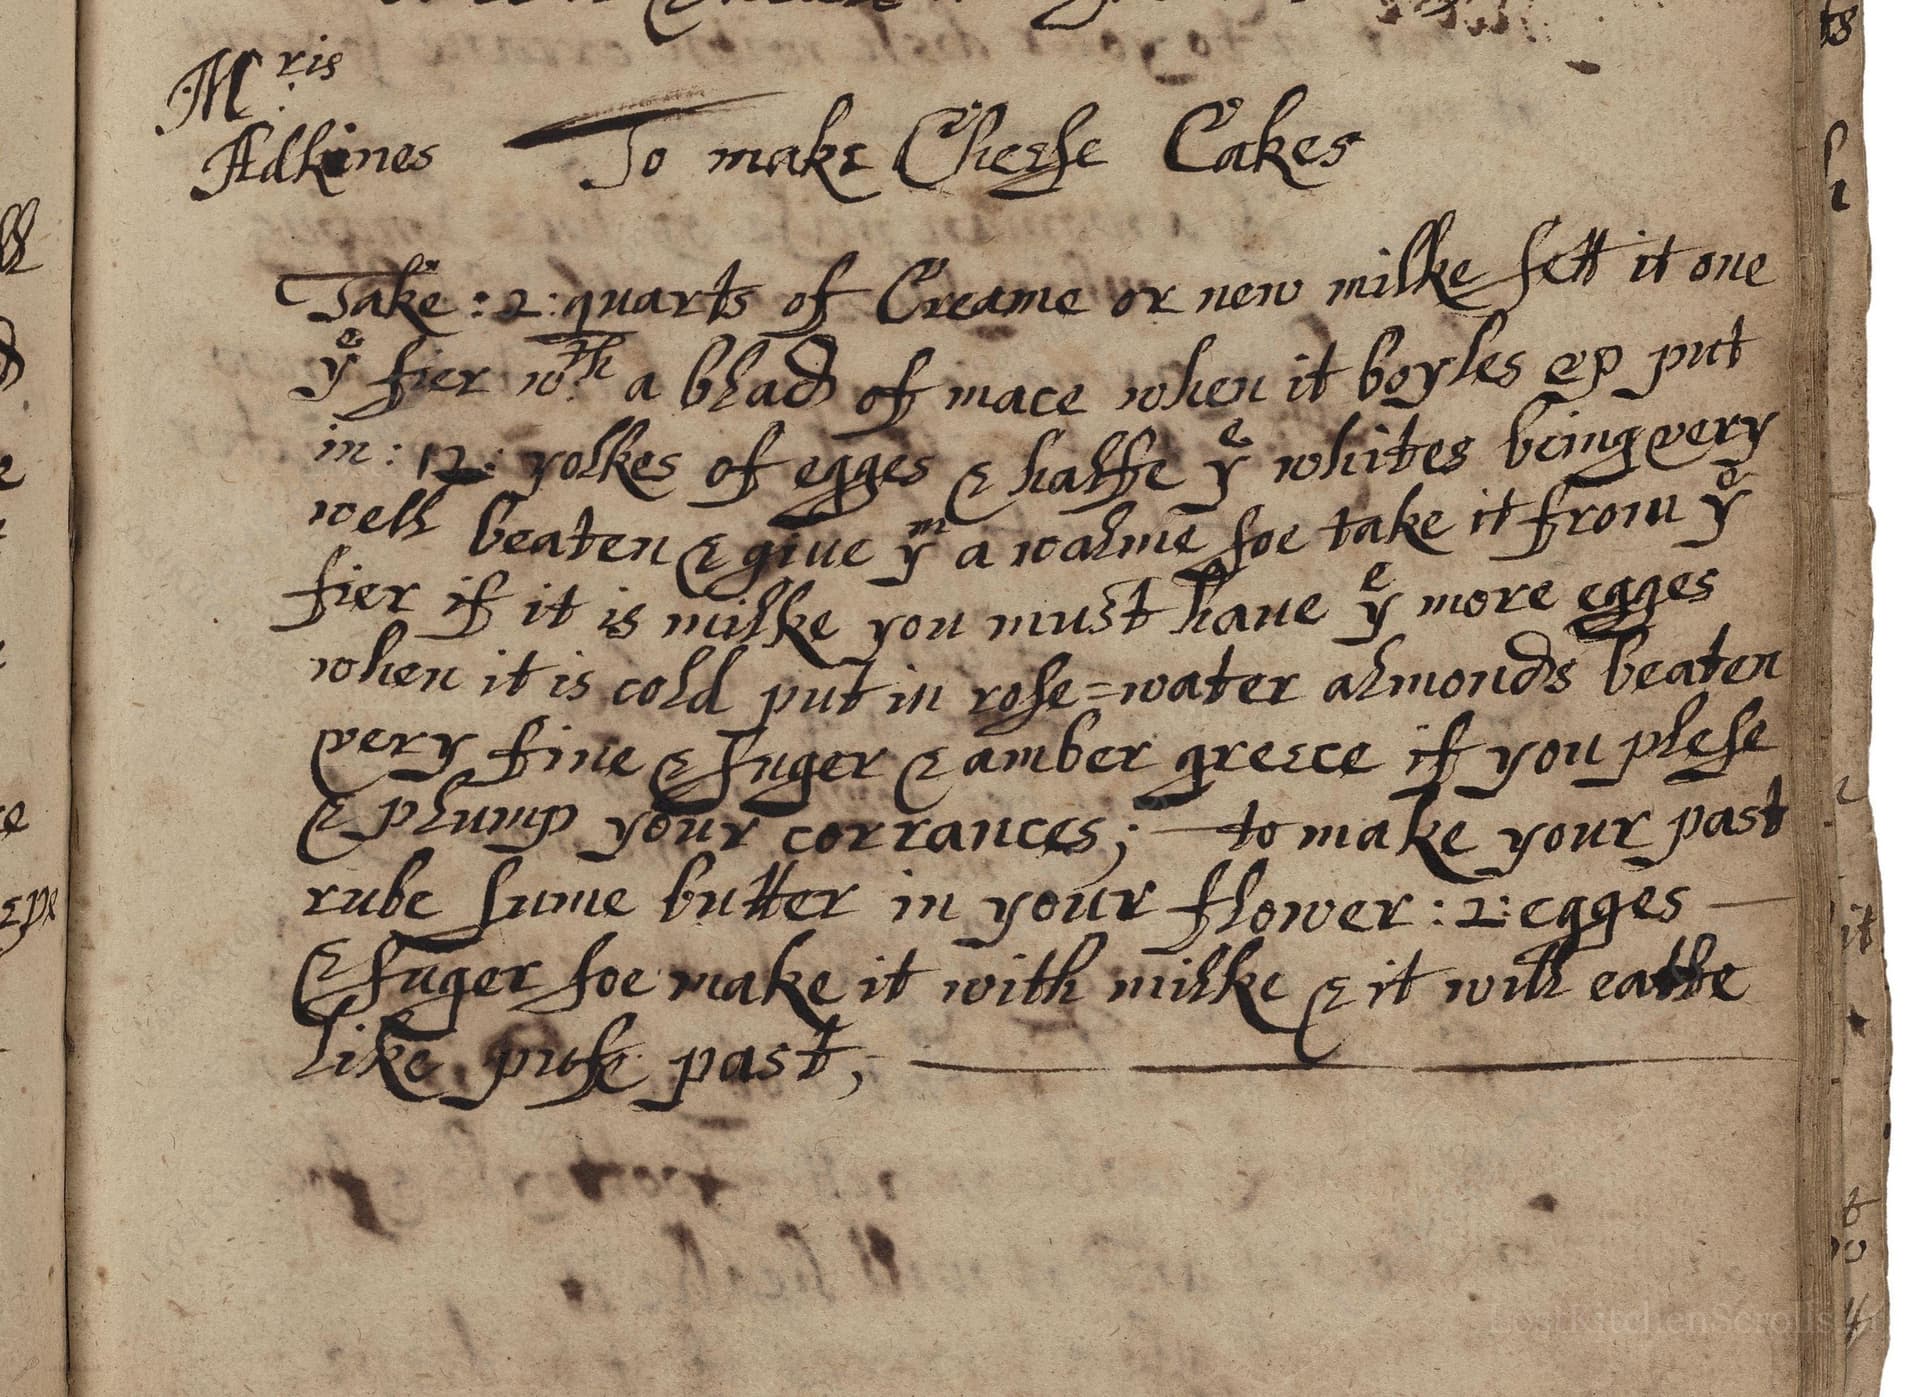 Mris
Adkines
To make Cheese Cakes
Take : 2 : quarts of Creame or new milke sett it one
ye fier wth a blad of mace when it boyles up put
in : 12 : yolkes of egges & halfe ye whites being very
well beaten & giue ym a walme soe take it from ye
fier if it is milke you must haue ye more egges
when it is cold put in rose=water almonds beaten
very fine & suger & amber greece if you plese
& plump your corrances; — to make your past
rube sume butter in your flower : 2 : egges —
& suger soe make it with milke & it will eatte
like pufe past,
LostKitchenScrolls